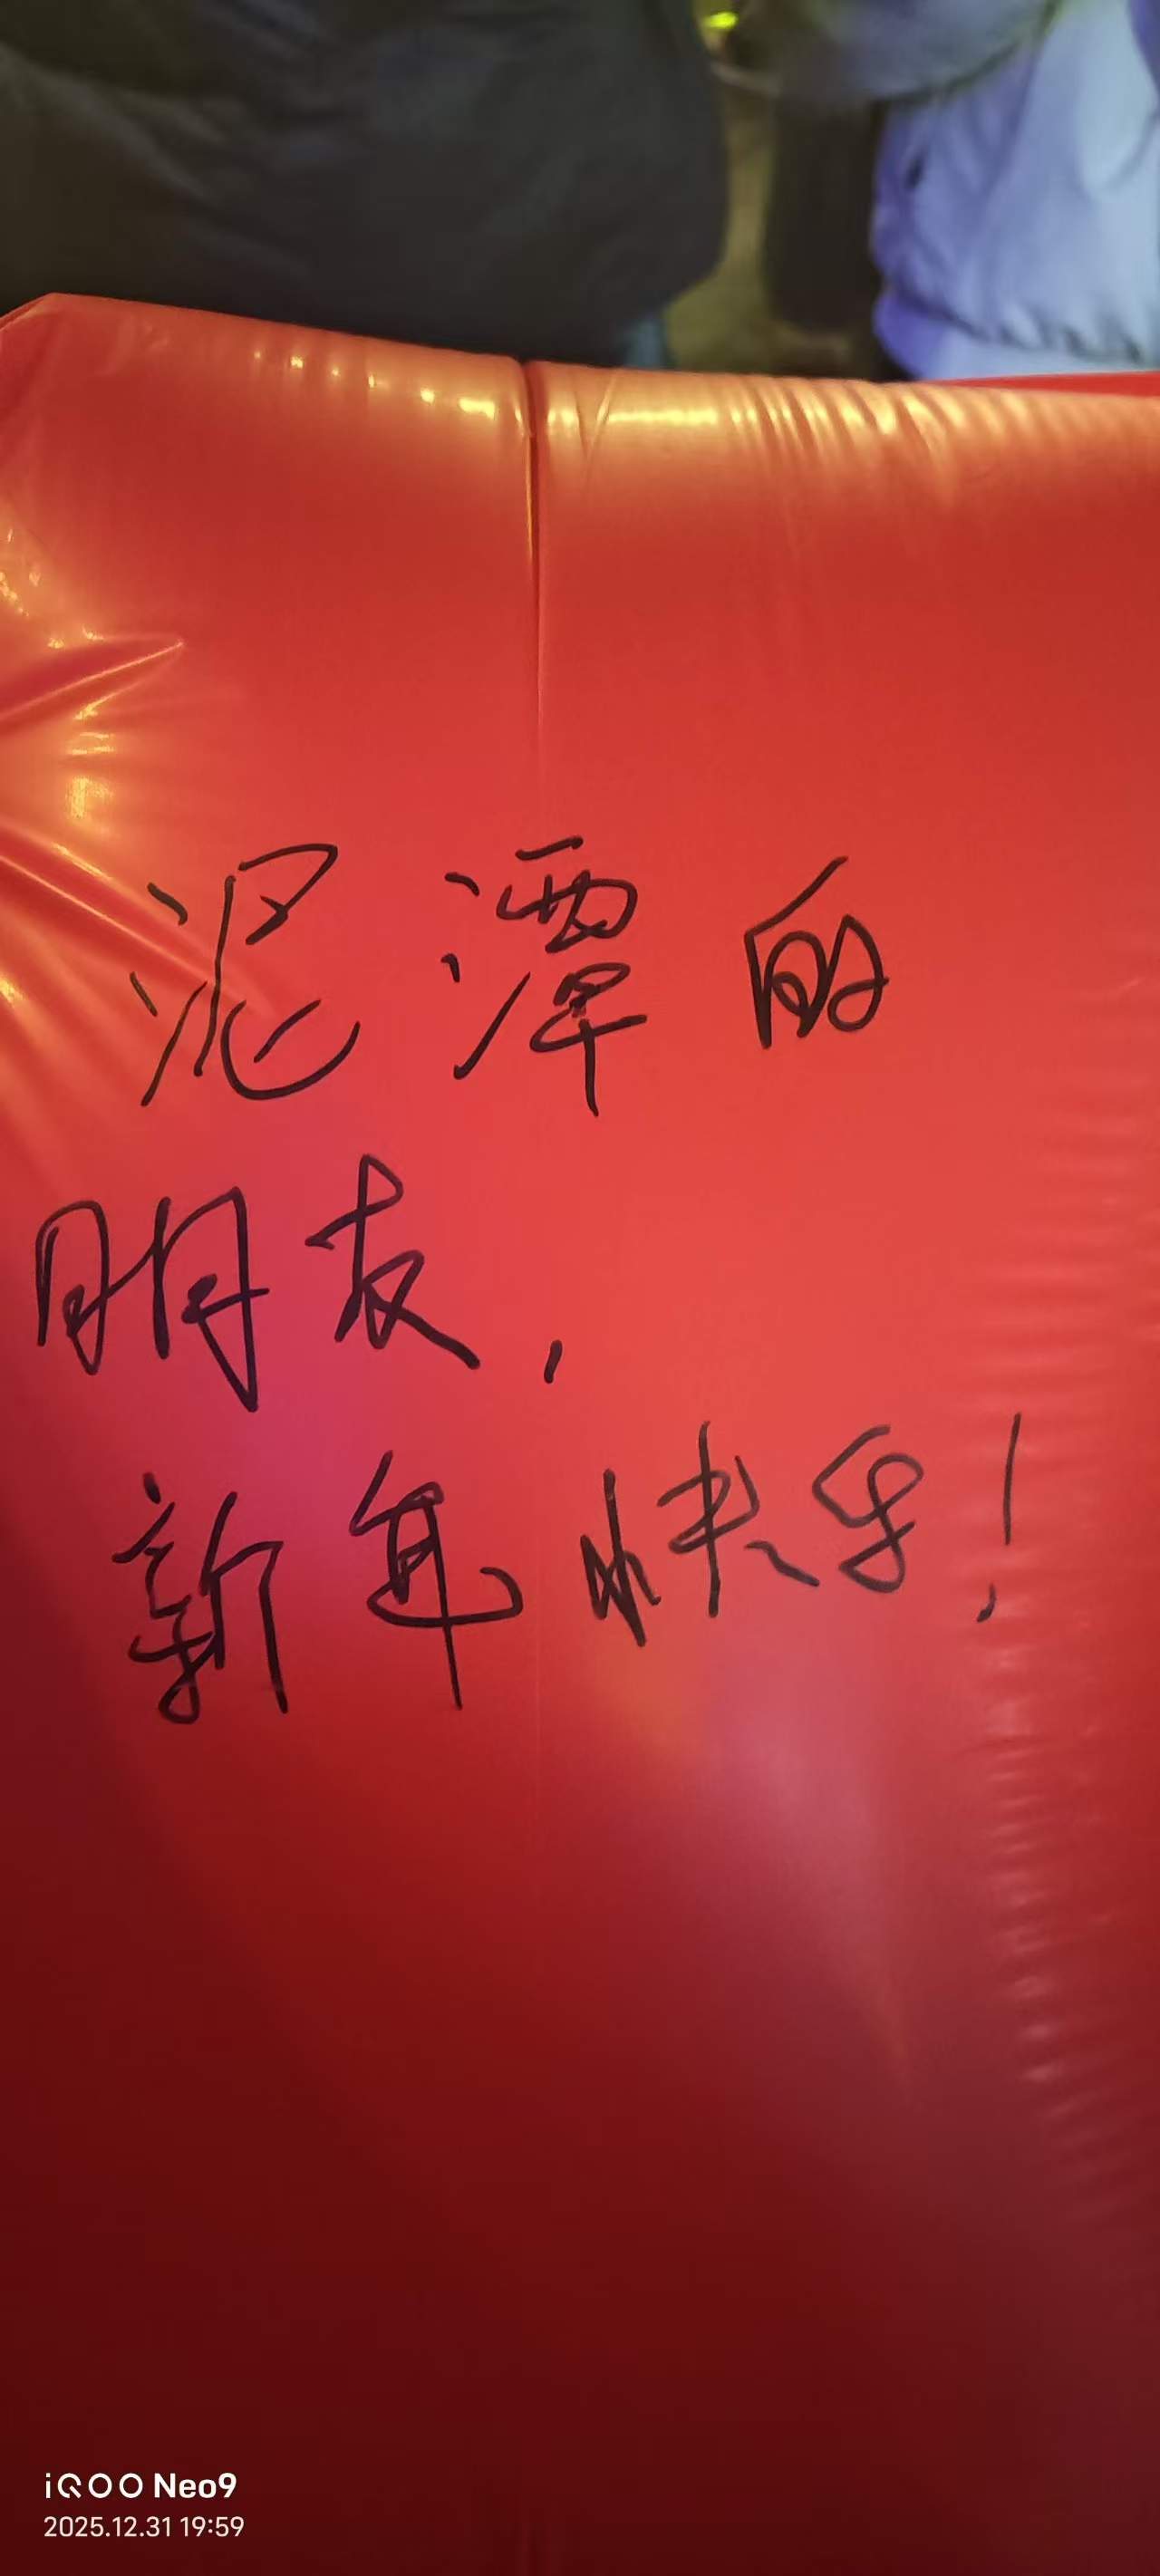 泥潭的
朋友,
新年快乐!
iQOO Neo9
2025.12.31 19:59